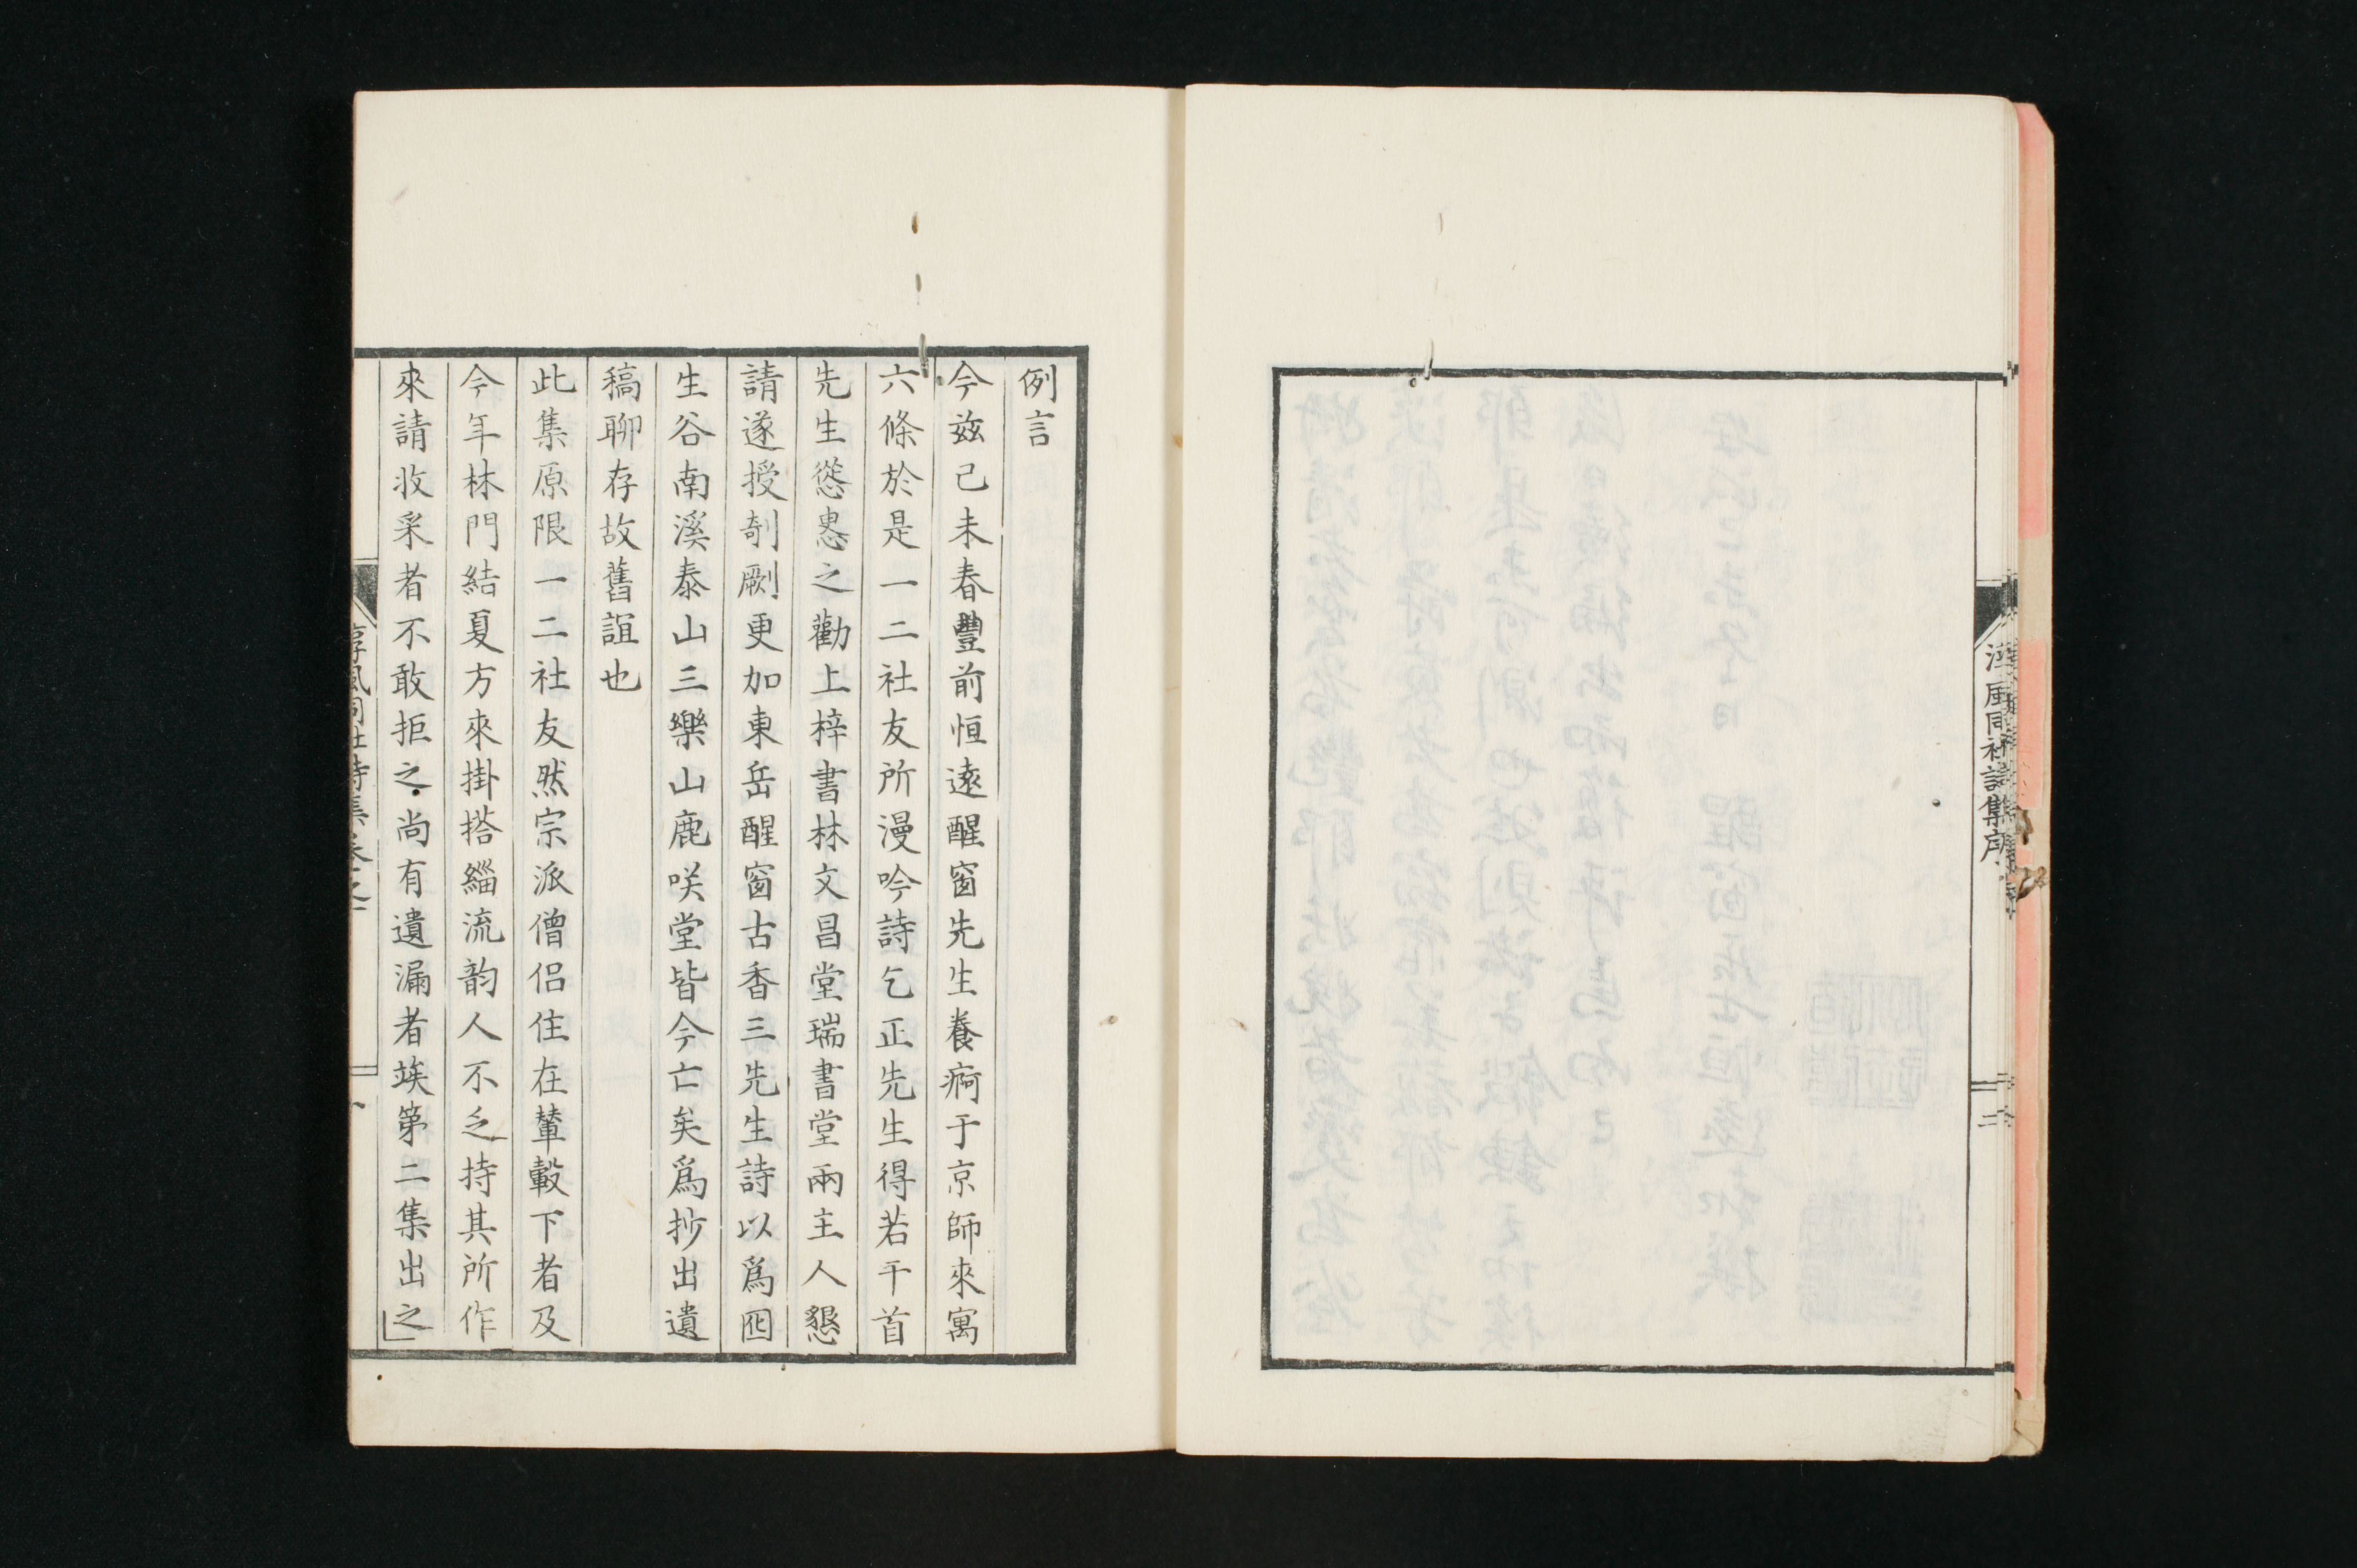 淳風同社詩集序
二
例言
今茲己未春豐前恒遠醒窗先生養痾于京師來寓
六條於是一二社友所漫吟詩乞正先生得若干首
先生慫恿之勸上梓書林文昌堂瑞書堂兩主人懇
請遂授剞劂更加東岳醒窗古香三先生詩以爲囮
生谷南溪泰山三樂山鹿咲堂皆今亡矣爲抄出遺
稿聊存故舊誼也
此集原限一二社友然宗派僧侶住在輦轂下者及
今年林門結夏方來掛搭緇流韵人不乏持其所作
來請收采者不敢拒之尚有遺漏者竢第二集出之
淳風同社詩集卷之一